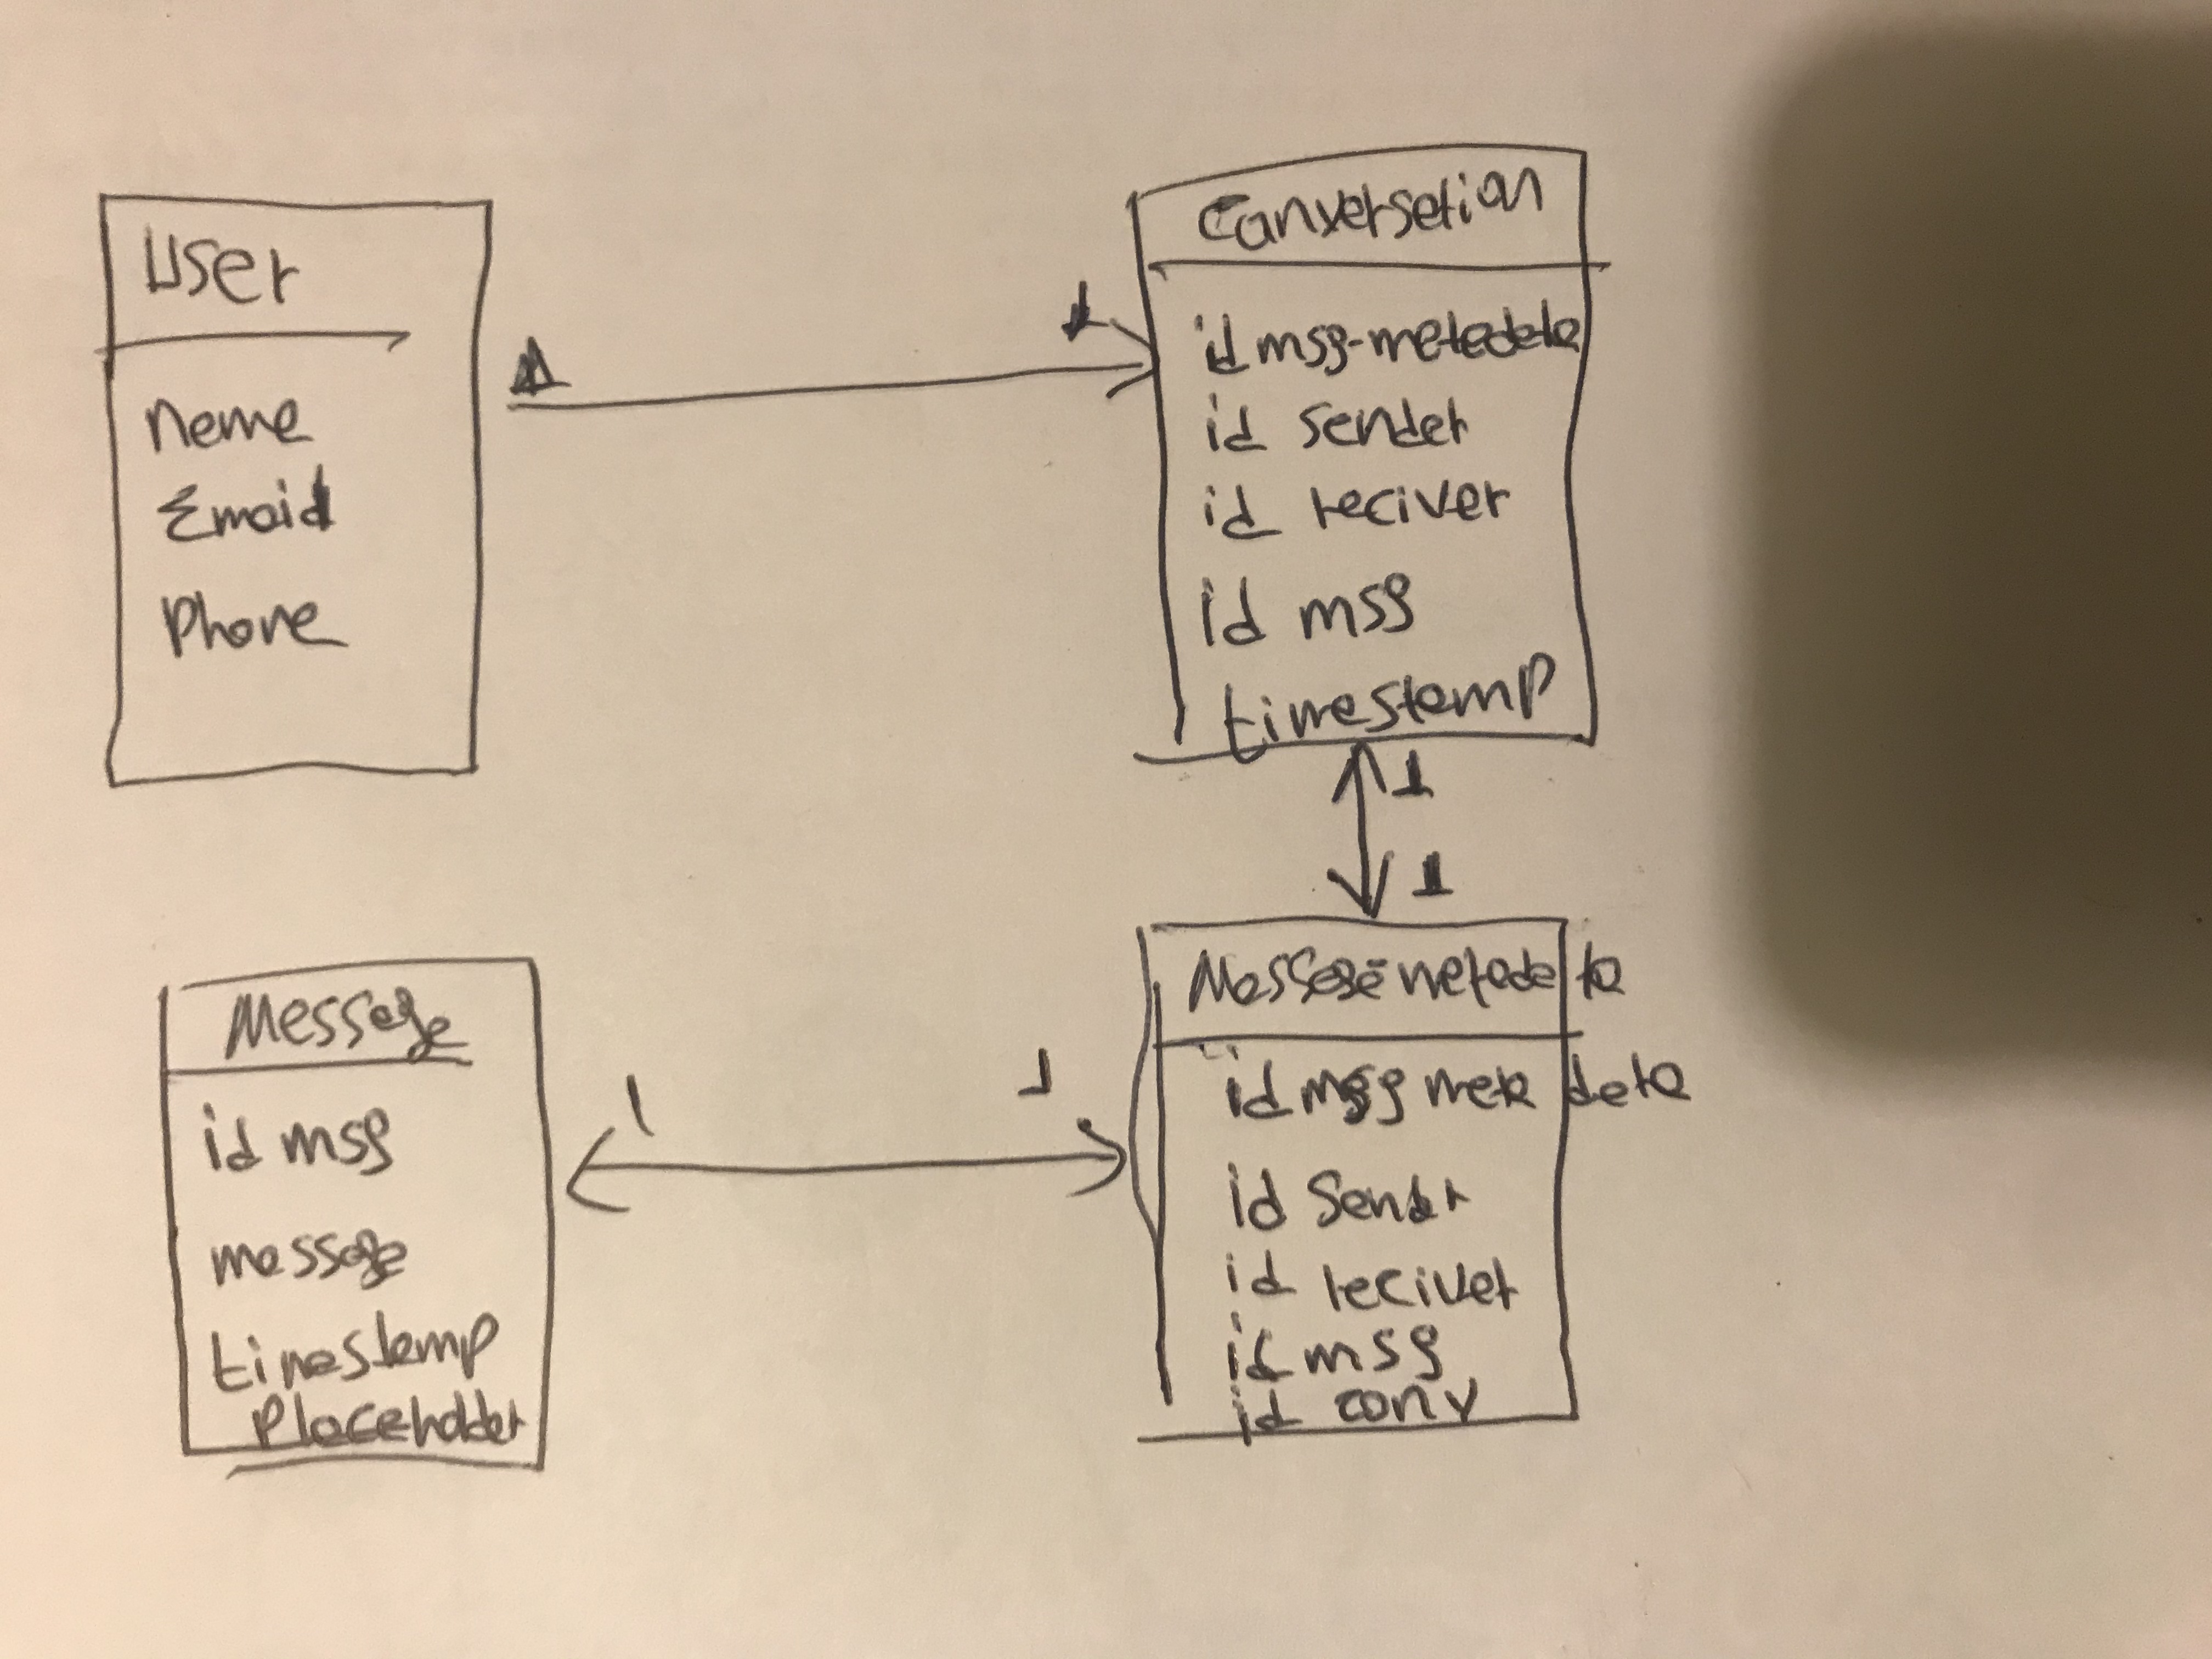 User
Name
Emaid
Phone
Conversetion
id msg-metadata
id sender
id reciver
id msg
timestamp
1
Message
id msg
message
timestamp
1
Message metadata
id msg meta data
id Sender
id reciver
id msg
id conv
I
I